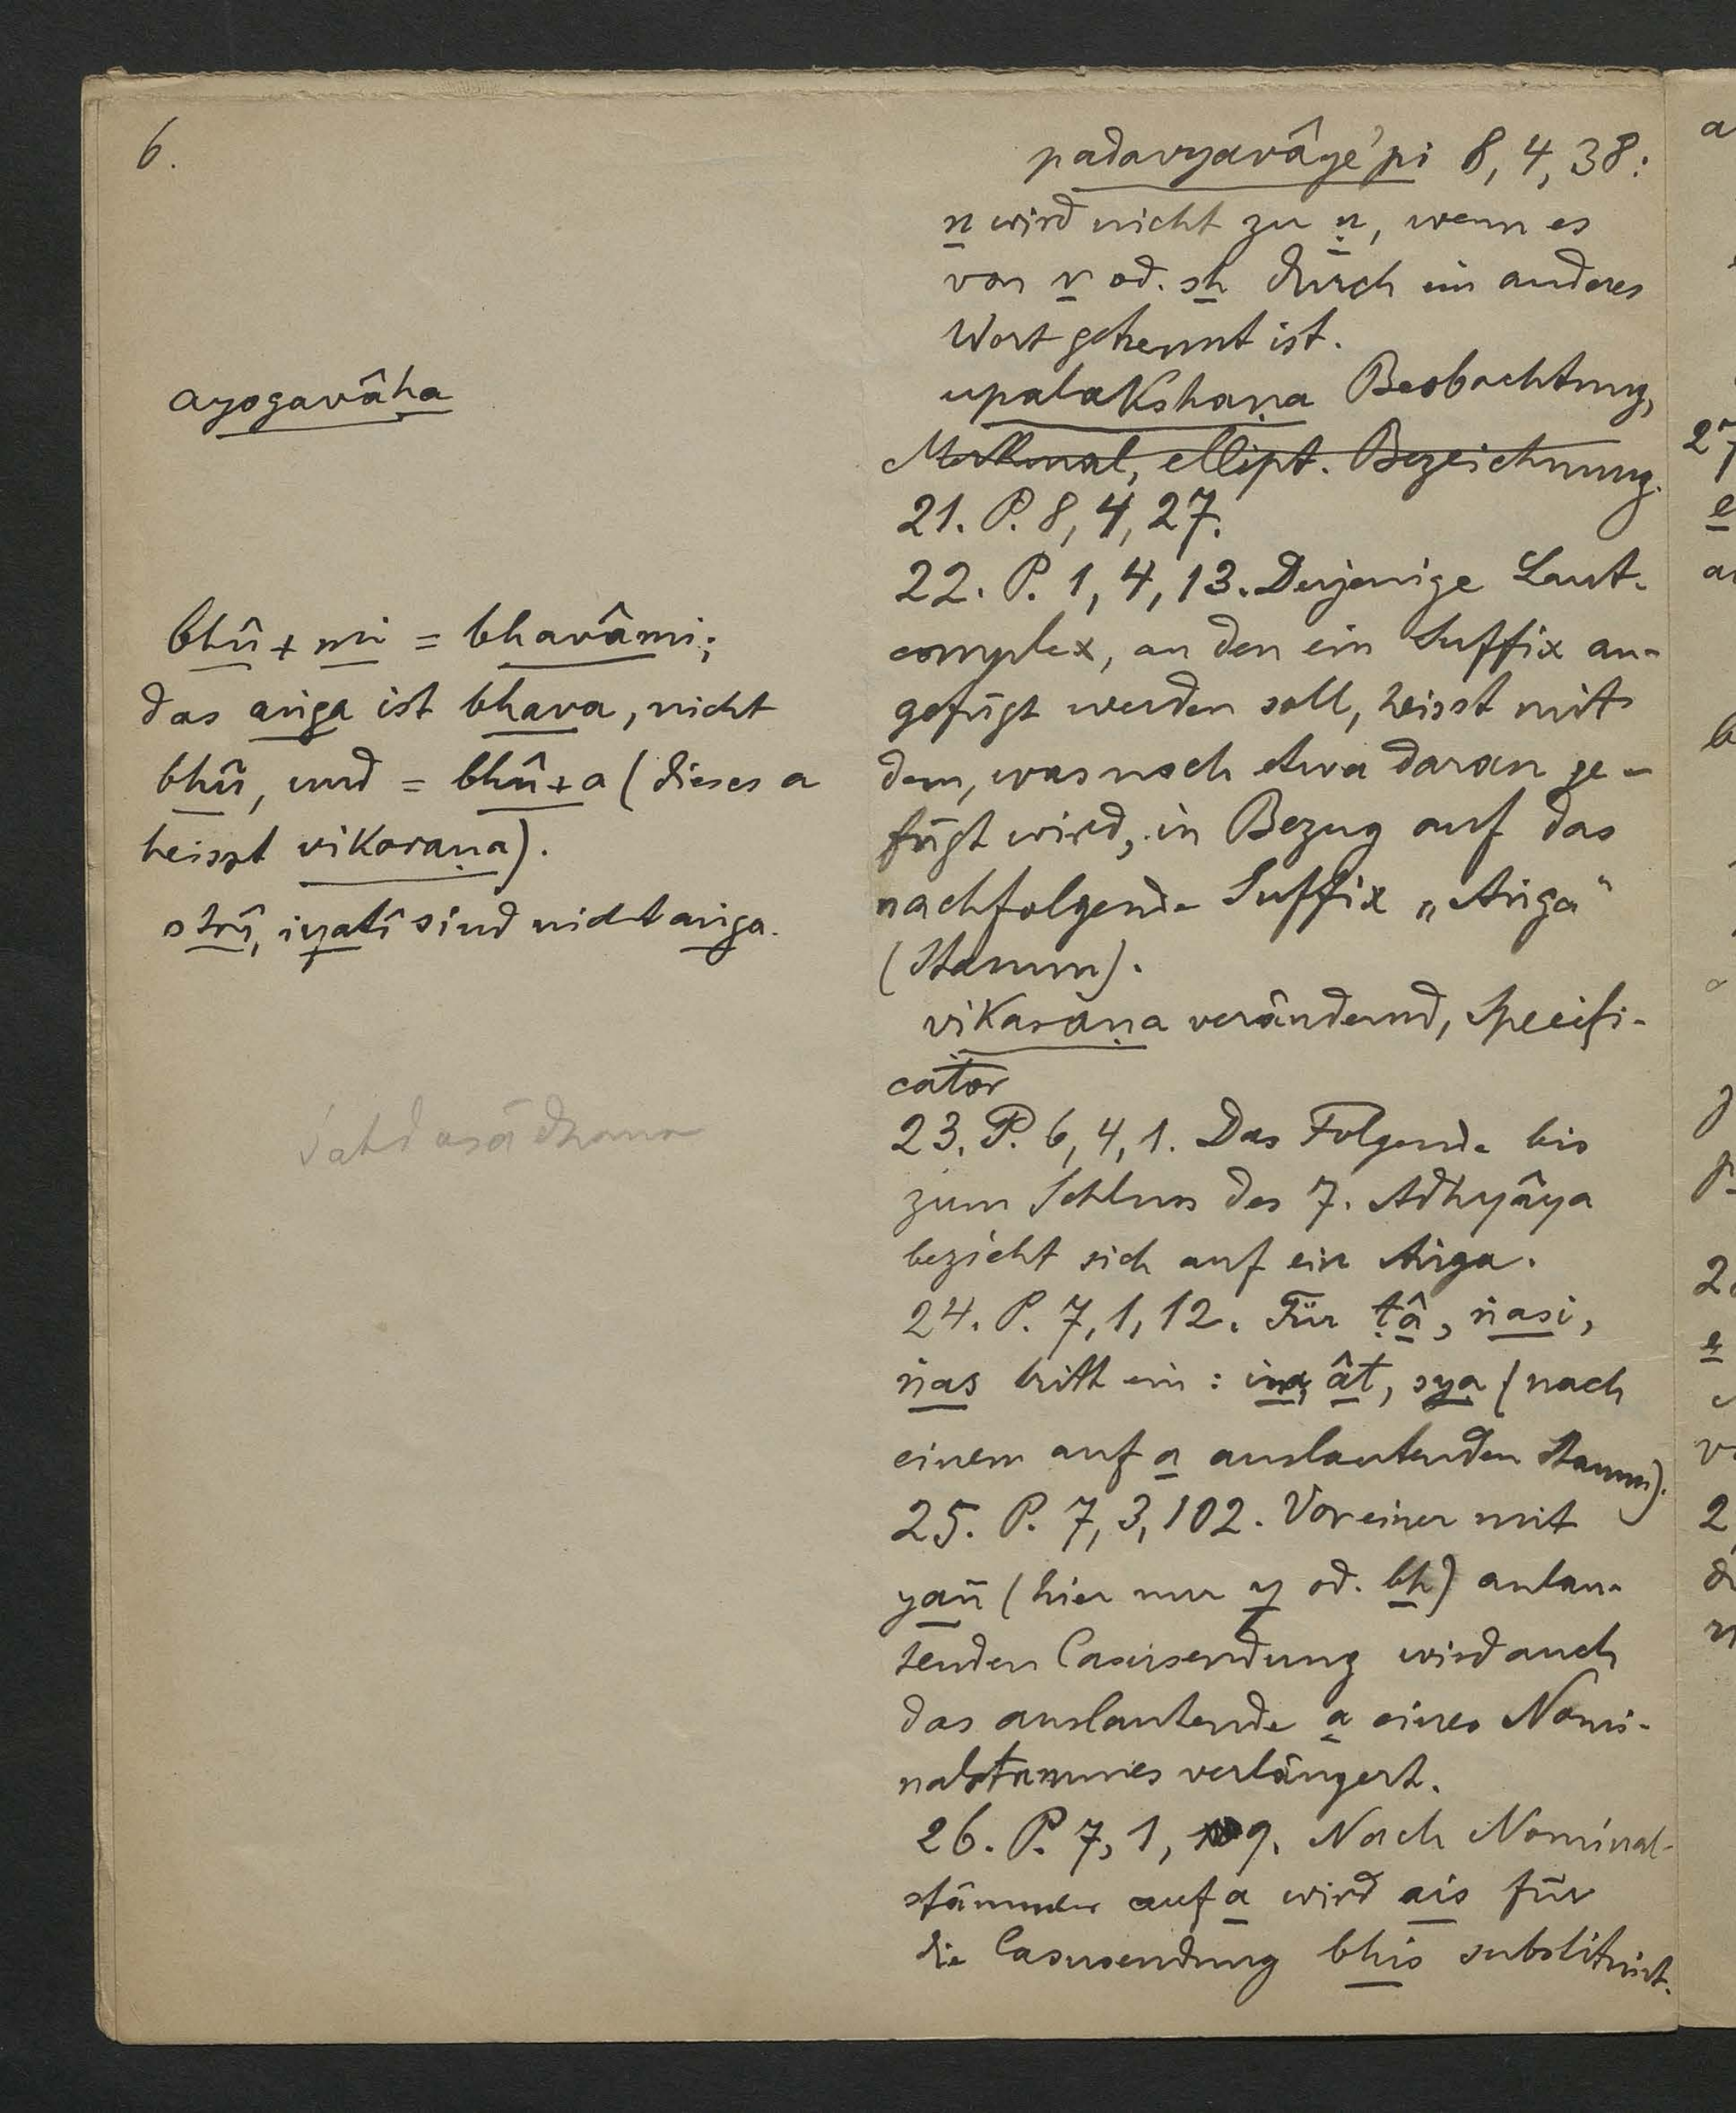 6.
ayogavâha
bhû + mi = bhavâmi;
das aṅga ist bhava, nicht
bhû, und = bhû+a (dieses a
heisst vikaraṇa).
strî, iyatî sind nicht aṅga.
padavyavâye'pi 8, 4, 38:
n wird nicht zu ṇ, wenn es
von r od. sh durch ein anderes
Wort getrennt ist.
upalakshaṇa Beobachtung,
Merkmal, ellipt. Bezeichnung.
21. P. 8, 4, 27.
22. P. 1, 4, 13. Derjenige Laut-
complex, an den ein Suffix an-
gefügt werden soll, heisst mit
dem, was noch etwa daran ge-
fügt wird, in Bezug auf das
nachfolgende Suffix „Aṅga"
(Stamm).
vikaraṇa verändernd, Specifi-
cator
23. P. 6, 4, 1. Das Folgende bis
zum Schluss des 7. Adhyâya
bezieht sich auf ein Aṅga.
24. P. 7, 1, 12. Für ṭâ, ṅasi,
ṅas tritt ein: ina, ât, sya (nach
einem auf a auslautenden Stamm).
25. P. 7, 3, 102. Vor einer mit
yañ (hier nur y od. bh) anlau-
tenden Casusendung wird auch
das auslautende a eines Nomi-
nalstammes verlängert.
26. P. 7, 1, 9. Nach Nominal-
stämmen auf a wird ais für
die Casusendung bhis substituirt.